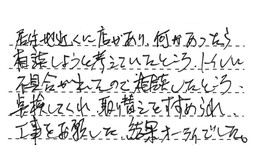 居住地近くに店があり、何かあったら
相談しようと考えていたところ、トイレに
不具合が出たので相談したところ
点検してくれ、取替えをすすめられ
工事をお願いした。結果オーライでした。